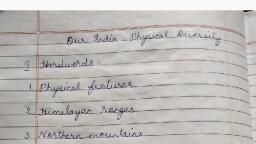 Our India - Physical Diversity
Q Hardwords :
1. Physical features
2. Himalayan ranges
3. Northern mountains